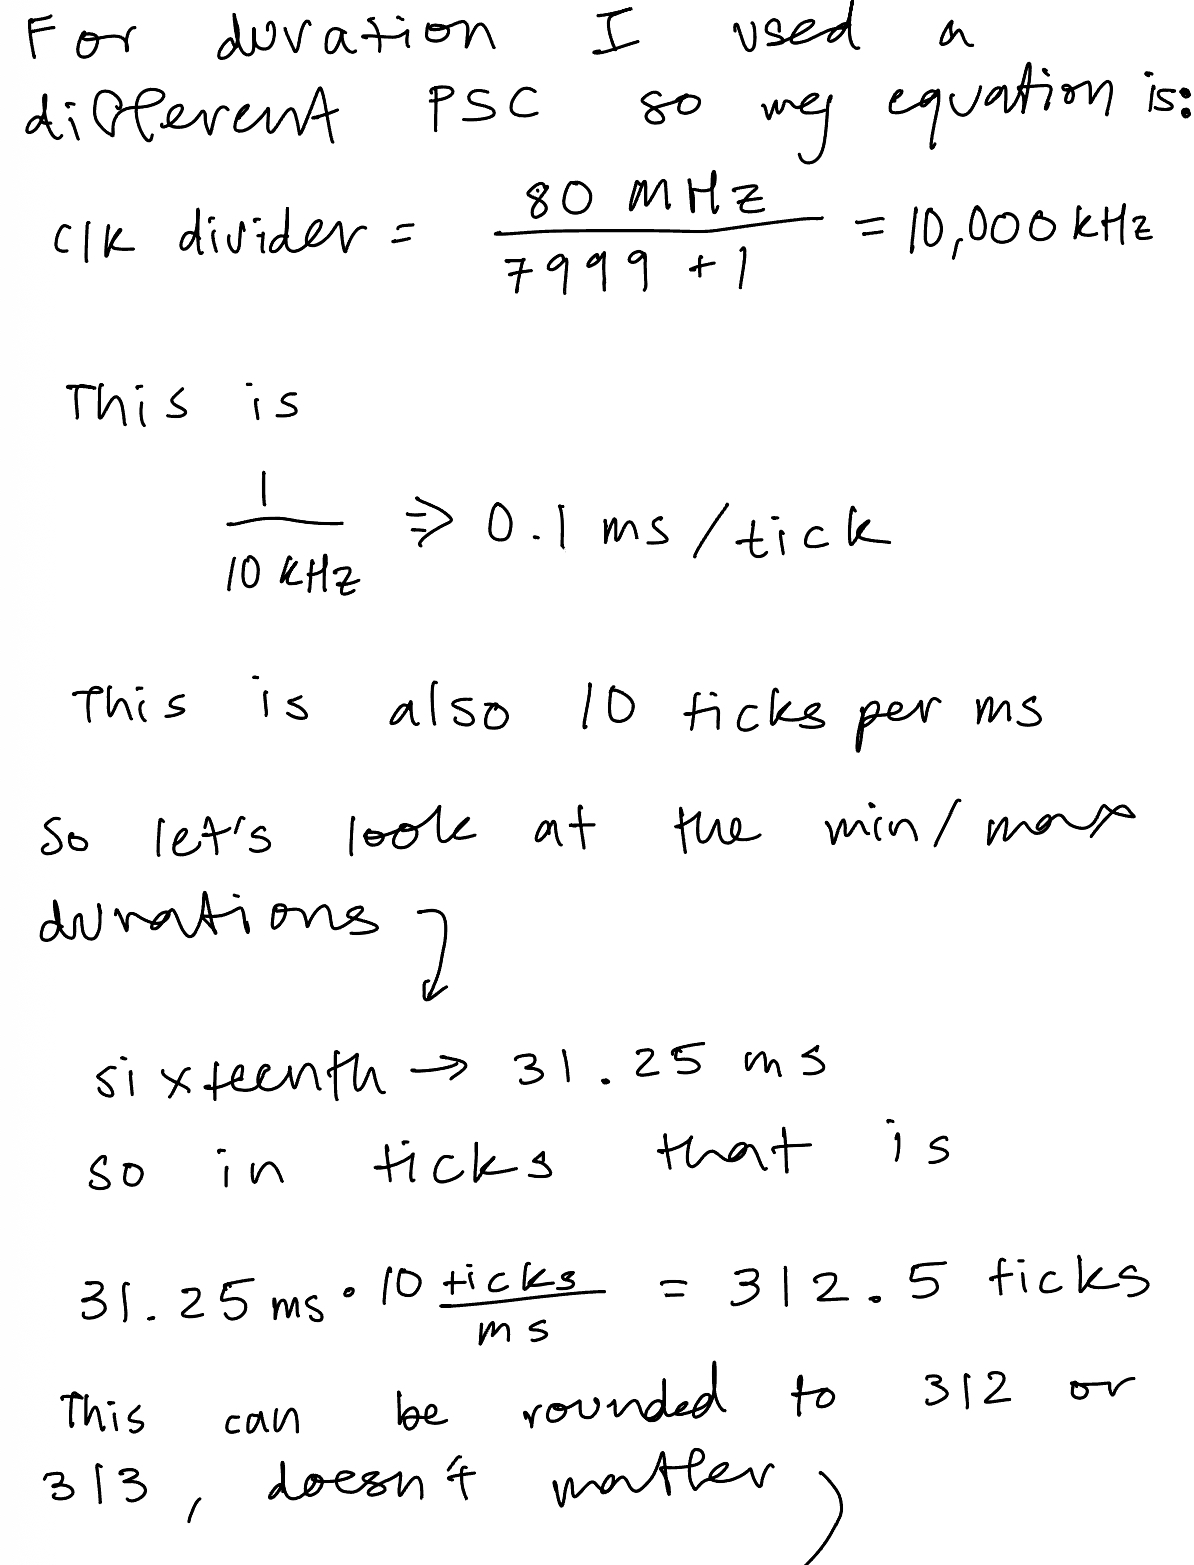 For duration I used a
different PSC so my equation is:
clk divider = 80 MHz / 7999 + 1 = 10,000 kHz
This is
1 / 10 kHz ⇒ 0.1 ms/tick
This is also 10 ticks per ms
So let's look at the min/max
durations
sixteenth → 31.25 ms
so in ticks that is
31.25 ms · 10 ticks / ms = 312.5 ticks
This can be rounded to 312 or
313, doesn't matter